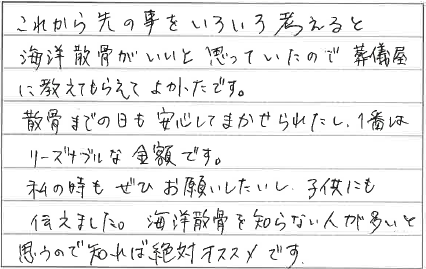 これから先の事をいろいろ考えると
海洋散骨がいいと思っていたので葬儀屋
に教えてもらえてよかったです。
散骨までの日も安心してまかせられたし、1番は
リーズナブルな金額です。
私の時もぜひお願いしたいし、子供にも
伝えました。海洋散骨を知らない人が多いと
思うので知れば絶対オススメです。